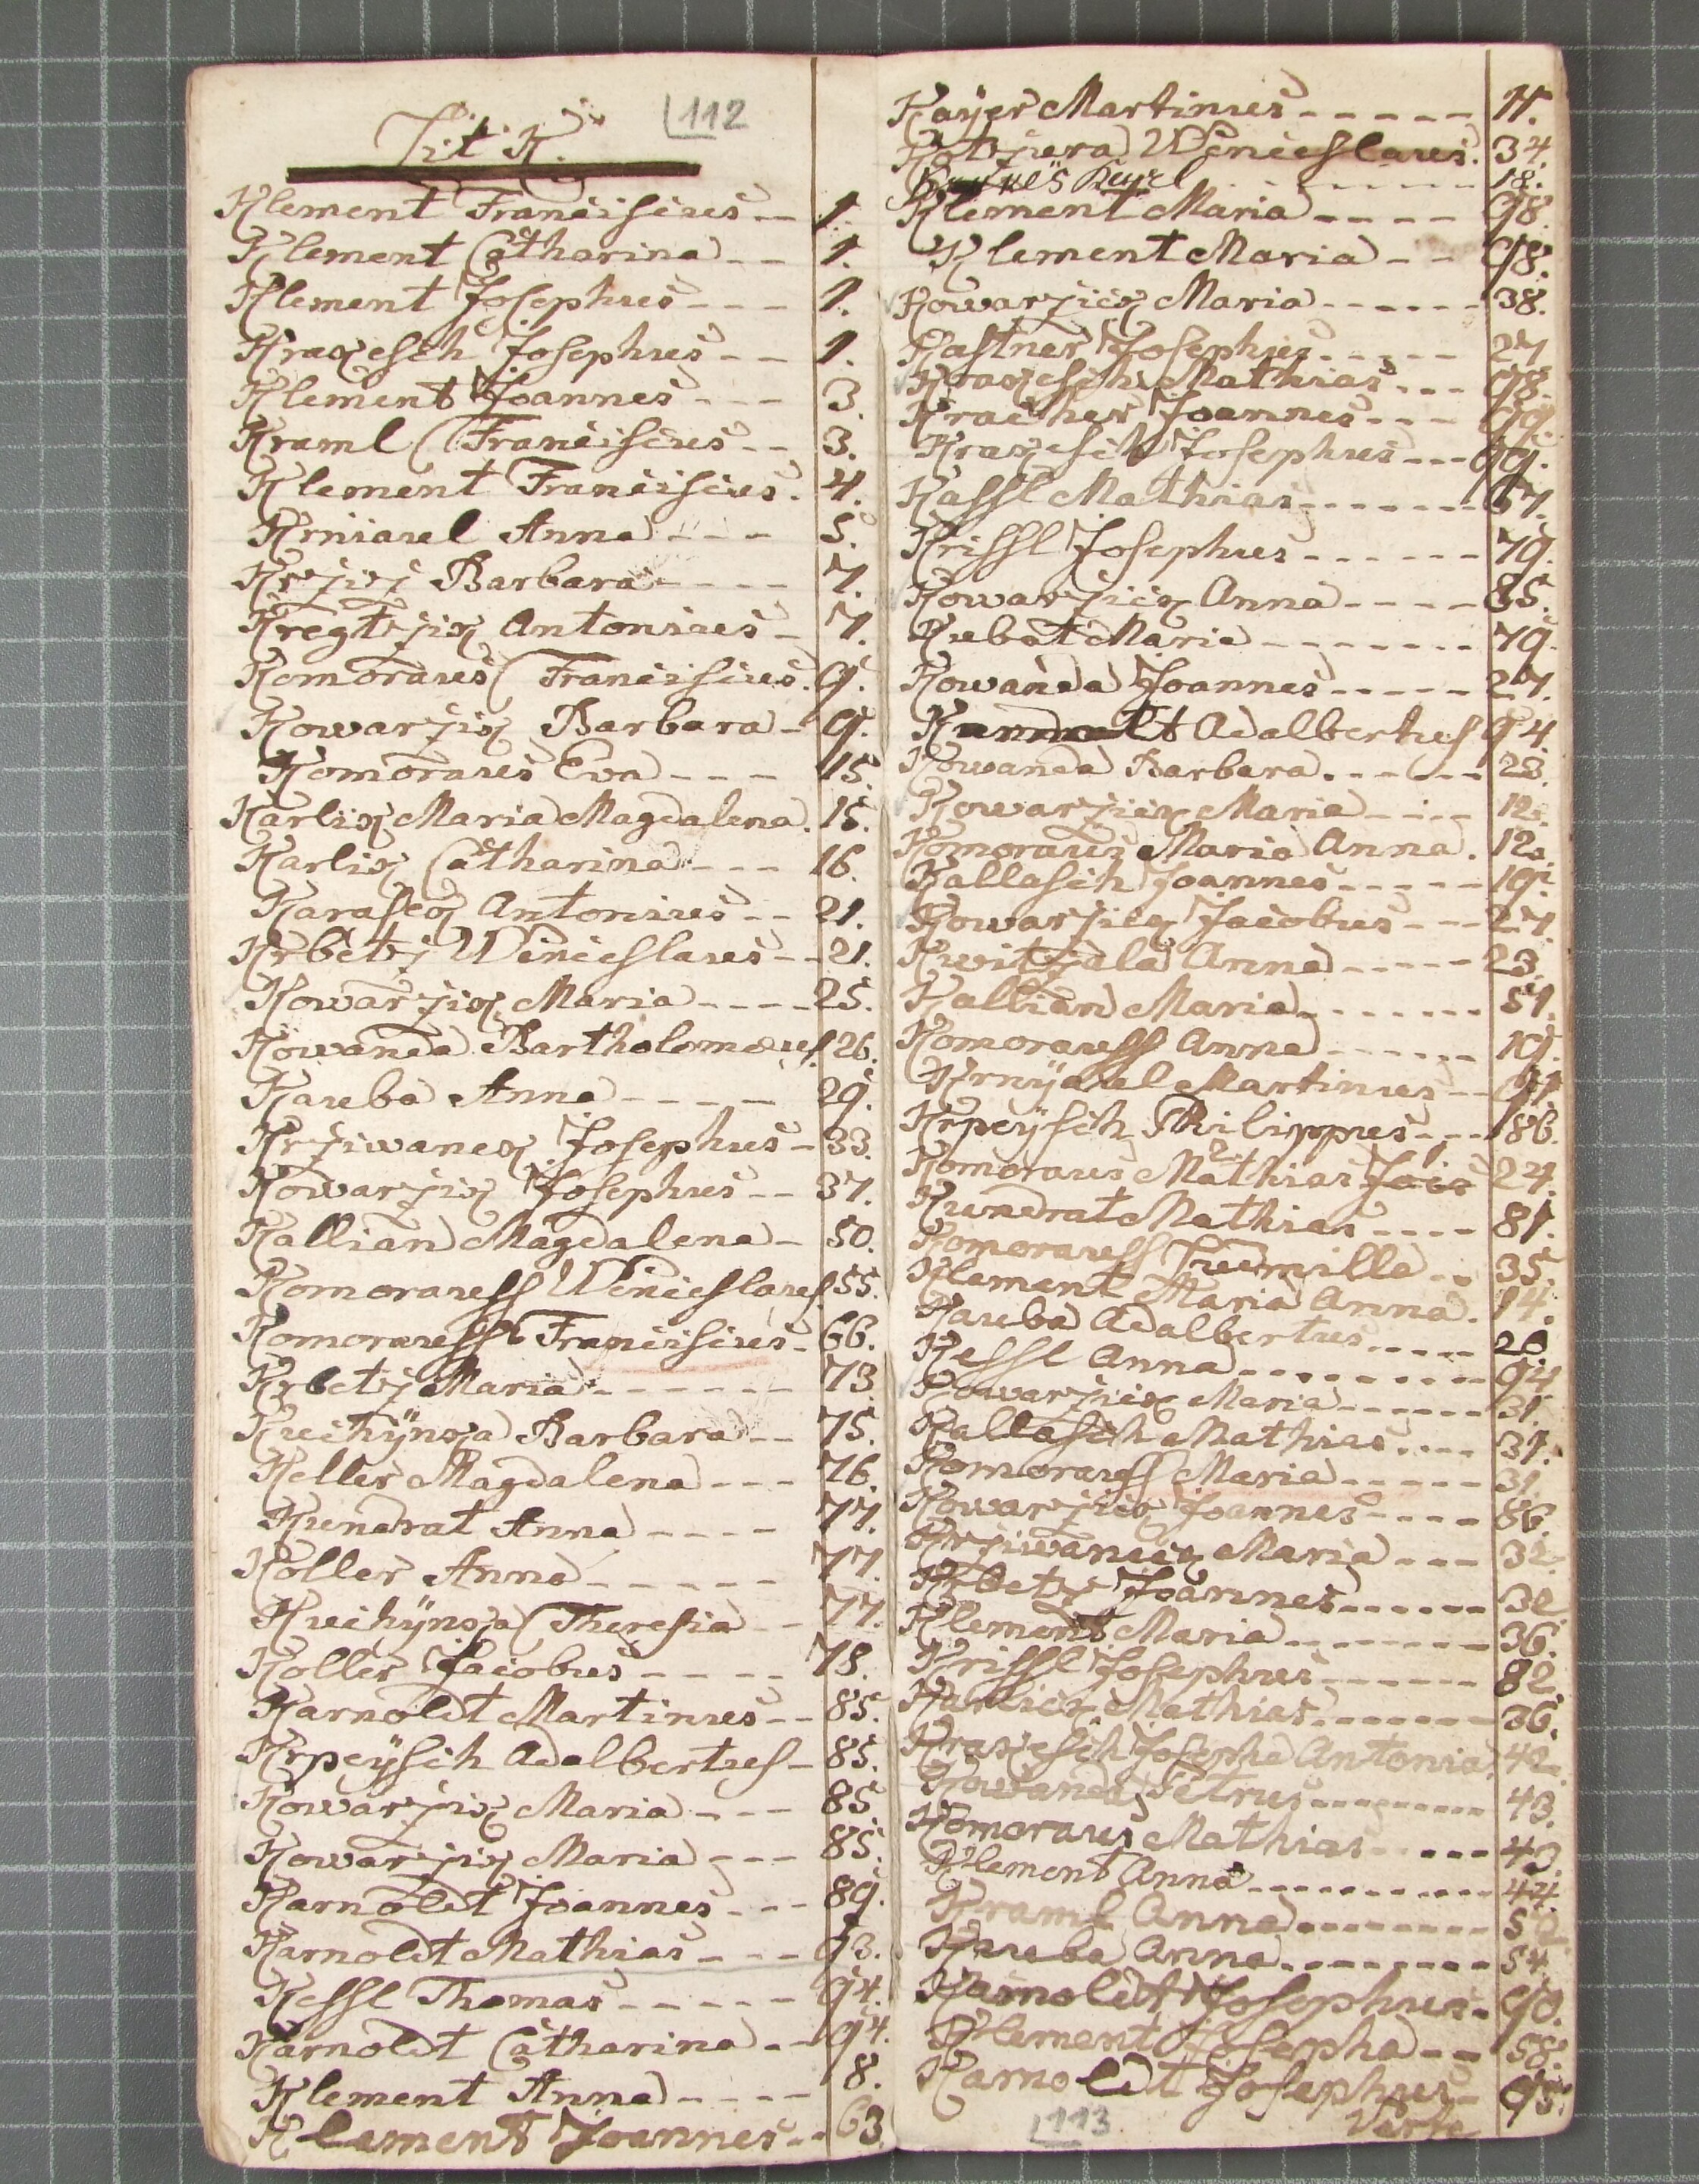 112
Lit K.
Klement Franciscus -- 1.
Klement Catharina -- 1.
Klement Josephus --- 1.
Kraxesch Josephus -- 1.
Klement Joannes --- 3.
Kraml Franciscus -- 3.
Klement Franciscus. 4.
Krniaul Anna --- 5.
Krziz Barbara ---- 7.
Kregtzix Antonius - 7.
Komoraus Franciscus. 9.
Kowarzix Barbara - 9.
Komoraus Eva --- 15.
Karlix Maria Magdalena. 15.
Karlix Catharina --- 16.
Karasex Antonius -- 21.
Krbetz Wenceslaus -- 21.
Kowarzix Maria ---- 25.
Kowanda Bartholomæus 26.
Kauba Anna ----- 29.
Krziwanex Josephus - 33.
Kowarzix Josephus -- 37.
Kallian Magdalena - 50.
Komorauss Wenceslaus 55.
Komorauss Franciscus - 66.
Krbetz Maria ------ 73.
Kuchÿnxa Barbara -- 75.
Keller Magdalena --- 76.
Kundrat Anna ---- 77.
Koller Anna ----- 77.
Kuchÿnxa Theresia -- 77.
Koller Jacobus ---- 78.
Karnoldt Martinus -- 85.
Krpeÿsch Adalbertus - 85.
Kowarzix Maria --- 85.
Kowarzix Maria --- 85.
Karnoldt Joannes --- 89.
Karnoldt Mathias --- 93.
Kessl Thomas ----- 94.
Karnoldt Catharina -- 94.
Klement Anna ---- 8.
Klement Joannes -- 63.
Kayer Martinus ----- 11.
Kotzura Wenceslaus. 34.
18.
Klement Maria ---- 98.
Klement Maria -- 98.
Kowarzicx Maria ----- 38.
Kastner Josephus ----- 27.
Kraxesch Mathias --- 98.
Kracher Joannes --- 99.
Kraxesch Josephus --- 99.
Kassl Mathias ------ 57.
Krissl Josephus ------ 79.
Kowarzicx Anna ---- 85.
Kubat Maria ------- 79.
Kowanda Joannes ----- 27.
Adalbertus 94
Kowanda Barbara ------ 23.
Kowarzicx Maria ---- 12.
Komoraus Maria Anna. 12.
Kallasch Joannes ----- 19.
Kowarzicx Jacobus --- 27.
Kwitzala Anna ----- 23.
Kallian Maria ------- 51.
Komorauss Anna ------ 19.
Krnÿaul Martinus -- 91.
Krpeÿsch Philippus --- 86.
Komoraus Mathias 24.
Kundrat Mathias ---- 81.
Komorauss Ludmilla -- 35.
Klement Maria Anna. 14.
Kauba Adalbertus ----- 28.
Kessl Anna --------- 94
Kowarzicx Maria ------ 31.
Kallasch Mathias ---- 31.
Komorauss Maria ----- 31.
Kowarzicx Joannes ---- 86.
Krziwanecx Maria --- 32.
Krbetz Joannes ------ 32
Klement Maria ------- 36.
Krissl Josephus ------ 82.
Karlicx Mathias ------- 36.
Kraxesch Josepha Antonia. 42.
Kowanda Petrus --------- 43.
Komoraus Mathias ----- 43.
Klement Anna ---------- 44.
Kraml Anna -------- 52.
Kauba Anna -------- 54.
Karnoldt Josephus - 90.
Klement Josepha -- 58.
Karnoldt Josephus - 95.
113
Verte